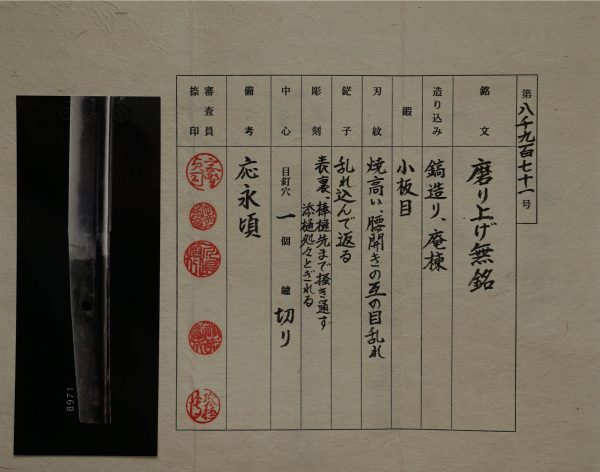 第八千九百七十一号
銘文 磨り上げ無銘
造り込み 鎬造り、庵棟
鍜 小板目
刃紋 焼高い、腰開きの互の目乱れ
鋩子 乱れ込んで返る
彫刻 表裏、棒樋先まで掻き通す
添樋処々とぎれる
中心 目釘穴 一個 鑢 切り
備考 応永頃
審査員捺印
8971